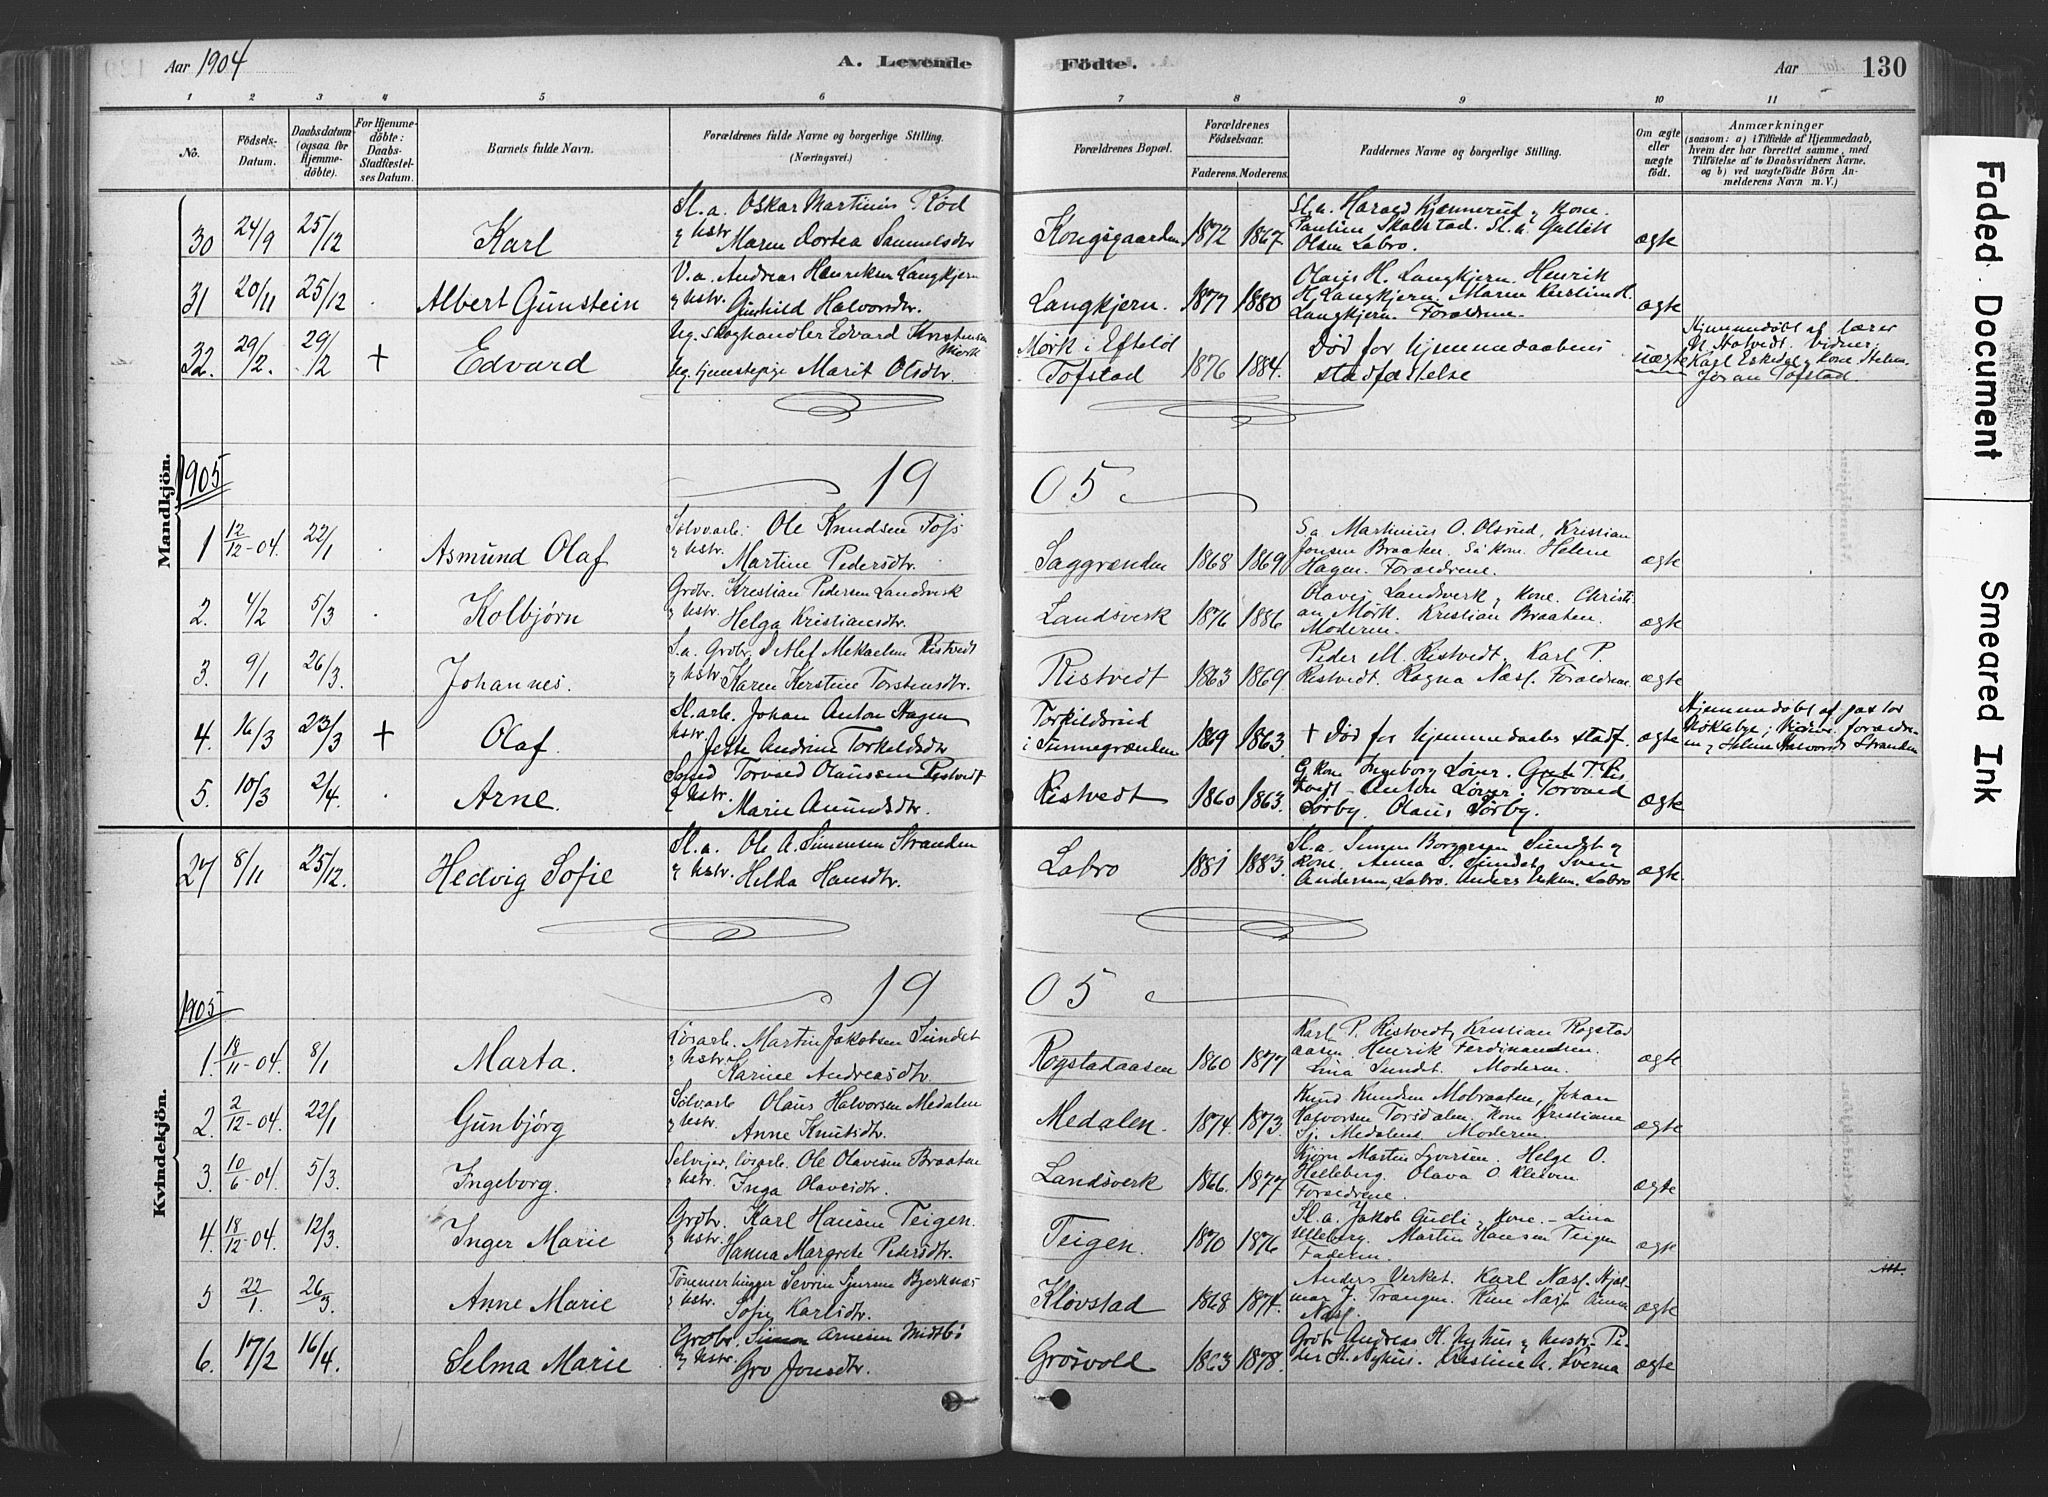 Aar 1904
A. Levende
Födte.
Aar
130
1 2 3 4 5 6 7 8 9 10 11
No.
Födsels-Datum.
Daabsdatum (ogsaa for Hjemmedöbte).
For Hjemmedöbte: Daabs-Stadfæstelses Datum.
Barnets fulde Navn.
Forældrenes fulde Navne og borgerlige Stilling.
(Næringsvei.)
Forældrenes Bopæl.
Forældrenes Födselsaar.
Faderens. Moderens.
Faddernes Navne og borgerlige Stilling.
Om ægte eller uægte födt.
Anmærkninger
(saasom: a) i Tilfælde af Hjemmedaab, hvem der har forrettet samme, med Tilföielse af to Daabsvidners Navne, og b) ved uægtefödte Börn Anmelderens Navn m. V.)
Mandkjön.
30 24/9 25/12 Karl
Sl.a. Oskar Martinius Rød
& hstr. Maren Dortea Samuelsdtr
Kongsgaarden 1872 1867
Sl.a. Harald Kjennerud & kone.
Pauline Skalstad. Sl.a. Gullik
Olsen Labro.
ægte
31 20/11 25/12 Albert Gunstein
V.a. Andreas Henriksen Langkjern
& hstr. Gunhild Halvorsdtr.
Langkjern. 1877 1880
Olaus H. Langkjern. Henrik
H. Langkjern. Maren Kirstine H.
Langkjern. Forældrene.
ægte
32. 29/2. 29/12 + Edvard
Ug. skoghandler Edvard Kristensen Mørk
Ug. tjenestepige Marit Olsdtr.
Mørk i Efteløt
Tofstad 1876 1884.
Død før hjemmedaabens
stadfæstelse
uægte
Hjemmedøbt af lærer
Karl Eskedal & kone
Tofstad.
1905
19 05
1 12/12-04. 22/1 Asmund Olaf
Sølvarb. Ole Knudsen Foss
& hstr. Martine Pedersdtr.
Saggrænden 1868 1869
S.a Martinius O. Olsrud, Kristian
Jonsen Braaten. Helene
Hagen. Forældrene.
ægte
2. 4/2 5/3 Kolbjørn
Grdbr. Kristian Pedersen Landsverk
& hstr. Helga Kristiansdtr.
Landsverk 1876 1886
Olavis Landsverk & kone. Christi-
an Mørk. Kristian Braaten.
Moderen.
ægte
3. 9/1 26/3. Johannes.
S.a. Grdbr. Mekaelsen Ristvedt
& hstr. Karen Kerstine Torstensdtr.
Ristvedt 1863 1869
Peder M. Ristvedt. Karl P.
Ristvedt. Ragna Næss. Forældrene.
ægte
4. 16/3 23/3 + Olaf
Sl.arb. Johan Anton Hagen
hstr. Andrine Torkeldsdtr
Torkildsrud
i Tunnegrænden 1869 1863
+ Død før hjemmedaabs stadf.
ægte
Hjemmedøbt af pastor
Løkkeby; Vidner: forældre-
ne & Helene Halvorsd. Stranden
5. 10/3 2/4 Arne.
Smed Torvald Olaussen Ristvedt
& hstr. Marie Amundsdtr.
Ristvedt 1860 1863.
Ingeborg Løver.
Anton Løver. Torvald
Sørby. Olaus Sørby.
ægte
27 8/11 25/12. Hedvig Sofie
Sl.a. Ole A. Simensen Stranden
& hstr. Helda Hansdtr.
Labro 1881 1883.
Sl.a. Simen Borgersen Sundet &
kone. Anna S. Sundet, Sven
Andersen Labro. Labro
ægte
Kvindekjön.
1905
19 05
1. 18/11-04. 8/1 Marta.
Martin Jakobsen Sundet
& hstr. Karine Andreasdtr.
Rogstadaasen 1860 1877
Karl P. Ristvedt, Kristian Rogstad
aasen. Henrik Ferdinandsen.
Lina Sundet. Moderen.
ægte
2. 2/12-04. 22/1 Gunbjørg
Sølvarb Olaus Halvorsen Medalen
& hstr. Anne Knutsdtr.
Medalen. 1874. 1873.
Knud Knudsen Mobraaten, Johan
Halvorsen Torsdalen. kone Kristiane
Medalens. Moderen.
ægte
3. 10/6-04. 5/3. Ingeborg.
Selveier, Ole Olavesen Braaten
& hstr. Inga Olavesdtr.
Landsverk 1866. 1877
Bjørn Martin Syversen. Helge O.
Helleberg. Olava O. Kleven.
Forældrene.
ægte
4. 18/12-04. 12/3. Inger Marie
Grdbr. Karl Hansen Teigen.
& hstr. Hanna Margrete Pedersdtr.
Teigen. 1870 1876
Sl.a. Jakob Gulli & kone. - Lina
Ulleberg. Martin Hansen Teigen
Faderen.
ægte
5 22/1. 26/3. Anne Marie
Tømmerhugger Sevrin Bjerknes
& hstr. Sofie Karlsdtr.
Kløvstad 1868 1874.
Anders Verket. Karl Næss. Hjal-
mar J. Trangen. Næss Anna
Næss.
ægte
6. 17/2 16/4. Selma Marie
Grdbr. Simon Arnesen Midtbø
& hstr. Gro Jonsdtr.
Grosvold 1863 1878.
Grdbr Andreas H. Nyhus & hustr. Pe-
der H. Nyhus. Kristine A. Kverna
ægte
Faded Document
Smeared Ink